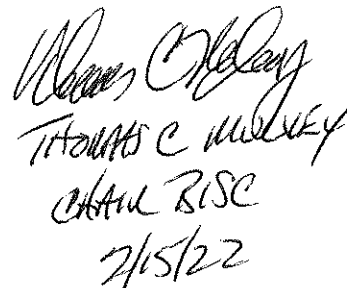 Thomas C Mulvey
THOMAS C MULVEY
CHAIR BISC
2/15/22